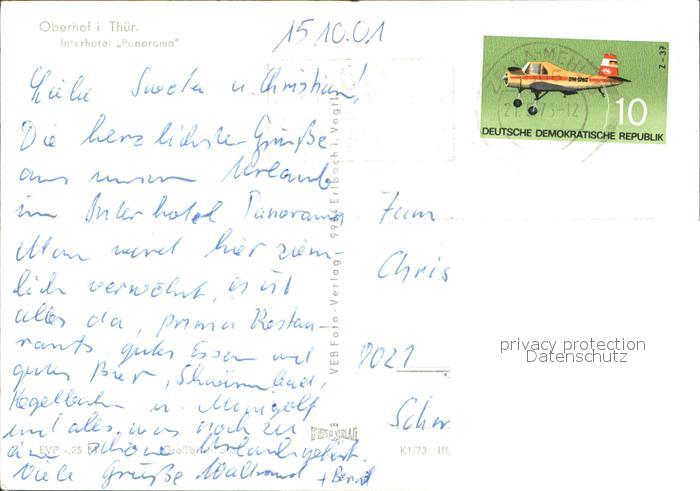 Oberhof i. Thür.
Interhotel „Panorama"
15 10.01
Liebe Sweeta u. Christian!
Die herzlichsten Grüße
aus unserem Urlaub
im Interhotel Panorama.
Man wird hier ziem-
lich verwöhnt, es ist
alles da, prima Restau-
rants gutes Essen und
gutes Bier, Schwimmbad,
Kegelbahn u. Minigolf
und alles, was noch zu
ein schöne Urlaub gehört.
Viele Grüße Waltraud + Bernd
EVP -,25 M
VEB Foto-Verlag Erlbach i. Vogtl.
K1/73 III
Z-37
DM-SMC
10
DEUTSCHE DEMOKRATISCHE REPUBLIK
Fam
Chris
8021
Schw
privacy protection
Datenschutz